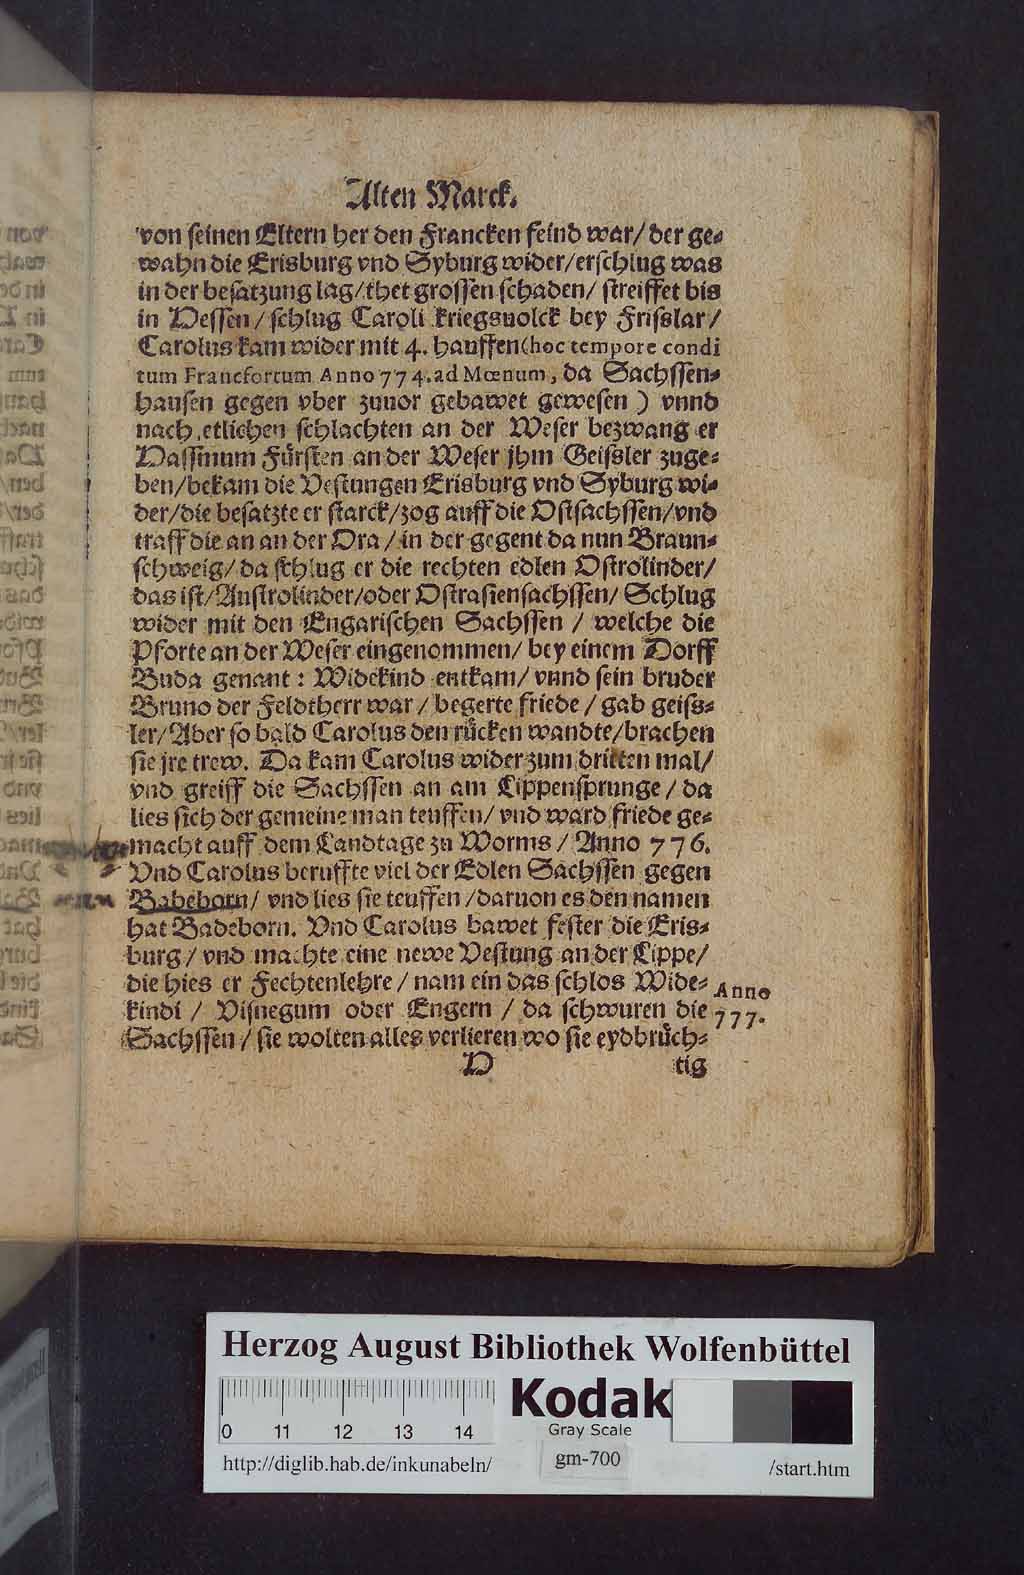 Alten Marck.
von seinen Eltern her den Francken feind war/ der ge⸗
wahn die Erisburg vnd Syburg wider/ erschlug was
in der besatzung lag/ thet grossen schaden/ streiffet bis
in Hessen/ schlug Caroli kriegsuolck bey Frißlar/
Carolus kam wider mit 4. hauffen (hoc tempore condi
tum Francfortum Anno 774. ad Mœnum, da Sachssen⸗
hausen gegen vber zuuor gebawet gewesen ) vnnd
nach etlichen schlachten an der Weser bezwang er
Hassinum Fürsten an der Weser jhm Geißler zuge⸗
ben/ bekam die Vestungen Erisburg vnd Syburg wi⸗
der/ die besatzte er starck/ zog auff die Ostsachssen/ vnd
traff die an an der Ora/ in der gegent da nun Braun⸗
schweig/ da schlug er die rechten edlen Ostrolinder/
das ist/ Austrolinder/ oder Ostrasiensachssen/ Schlug
wider mit den Engarischen Sachssen / welche die
Pforte an der Weser eingenommen/ bey einem Dorff
Buda genant : Widekind entkam/ vnnd sein bruder
Bruno der Feldtherr war / begerte friede / gab geiß⸗
ler/ Aber so bald Carolus den rücken wandte/ brachen
sie jre trew. Da kam Carolus wider zum dritten mal/
vnd greiff die Sachssen an am Lippensprunge / da
lies sich der gemeine man teuffen/ vnd ward friede ge⸗
macht auff dem Landtage zu Worms / Anno 776.
Vnd Carolus beruffte viel der Edlen Sachssen gegen
Badeborn/ vnd lies sie teuffen / daruon es den namen
hat Badeborn. Vnd Carolus bawet fester die Eris⸗
burg / vnd machte eine newe Vestung an der Lippe/
die hies er Fechtenlehre / nam ein das schlos Wide⸗
kindi / Visnegum oder Engern / da schwuren die
Anno
777.
Sachssen / sie wolten alles verlieren wo sie eydbrüch⸗
D
tig
Herzog August Bibliothek Wolfenbüttel
0 11 12 13 14
Kodak
Gray Scale
http://diglib.hab.de/inkunabeln/
gm-700
/start.htm